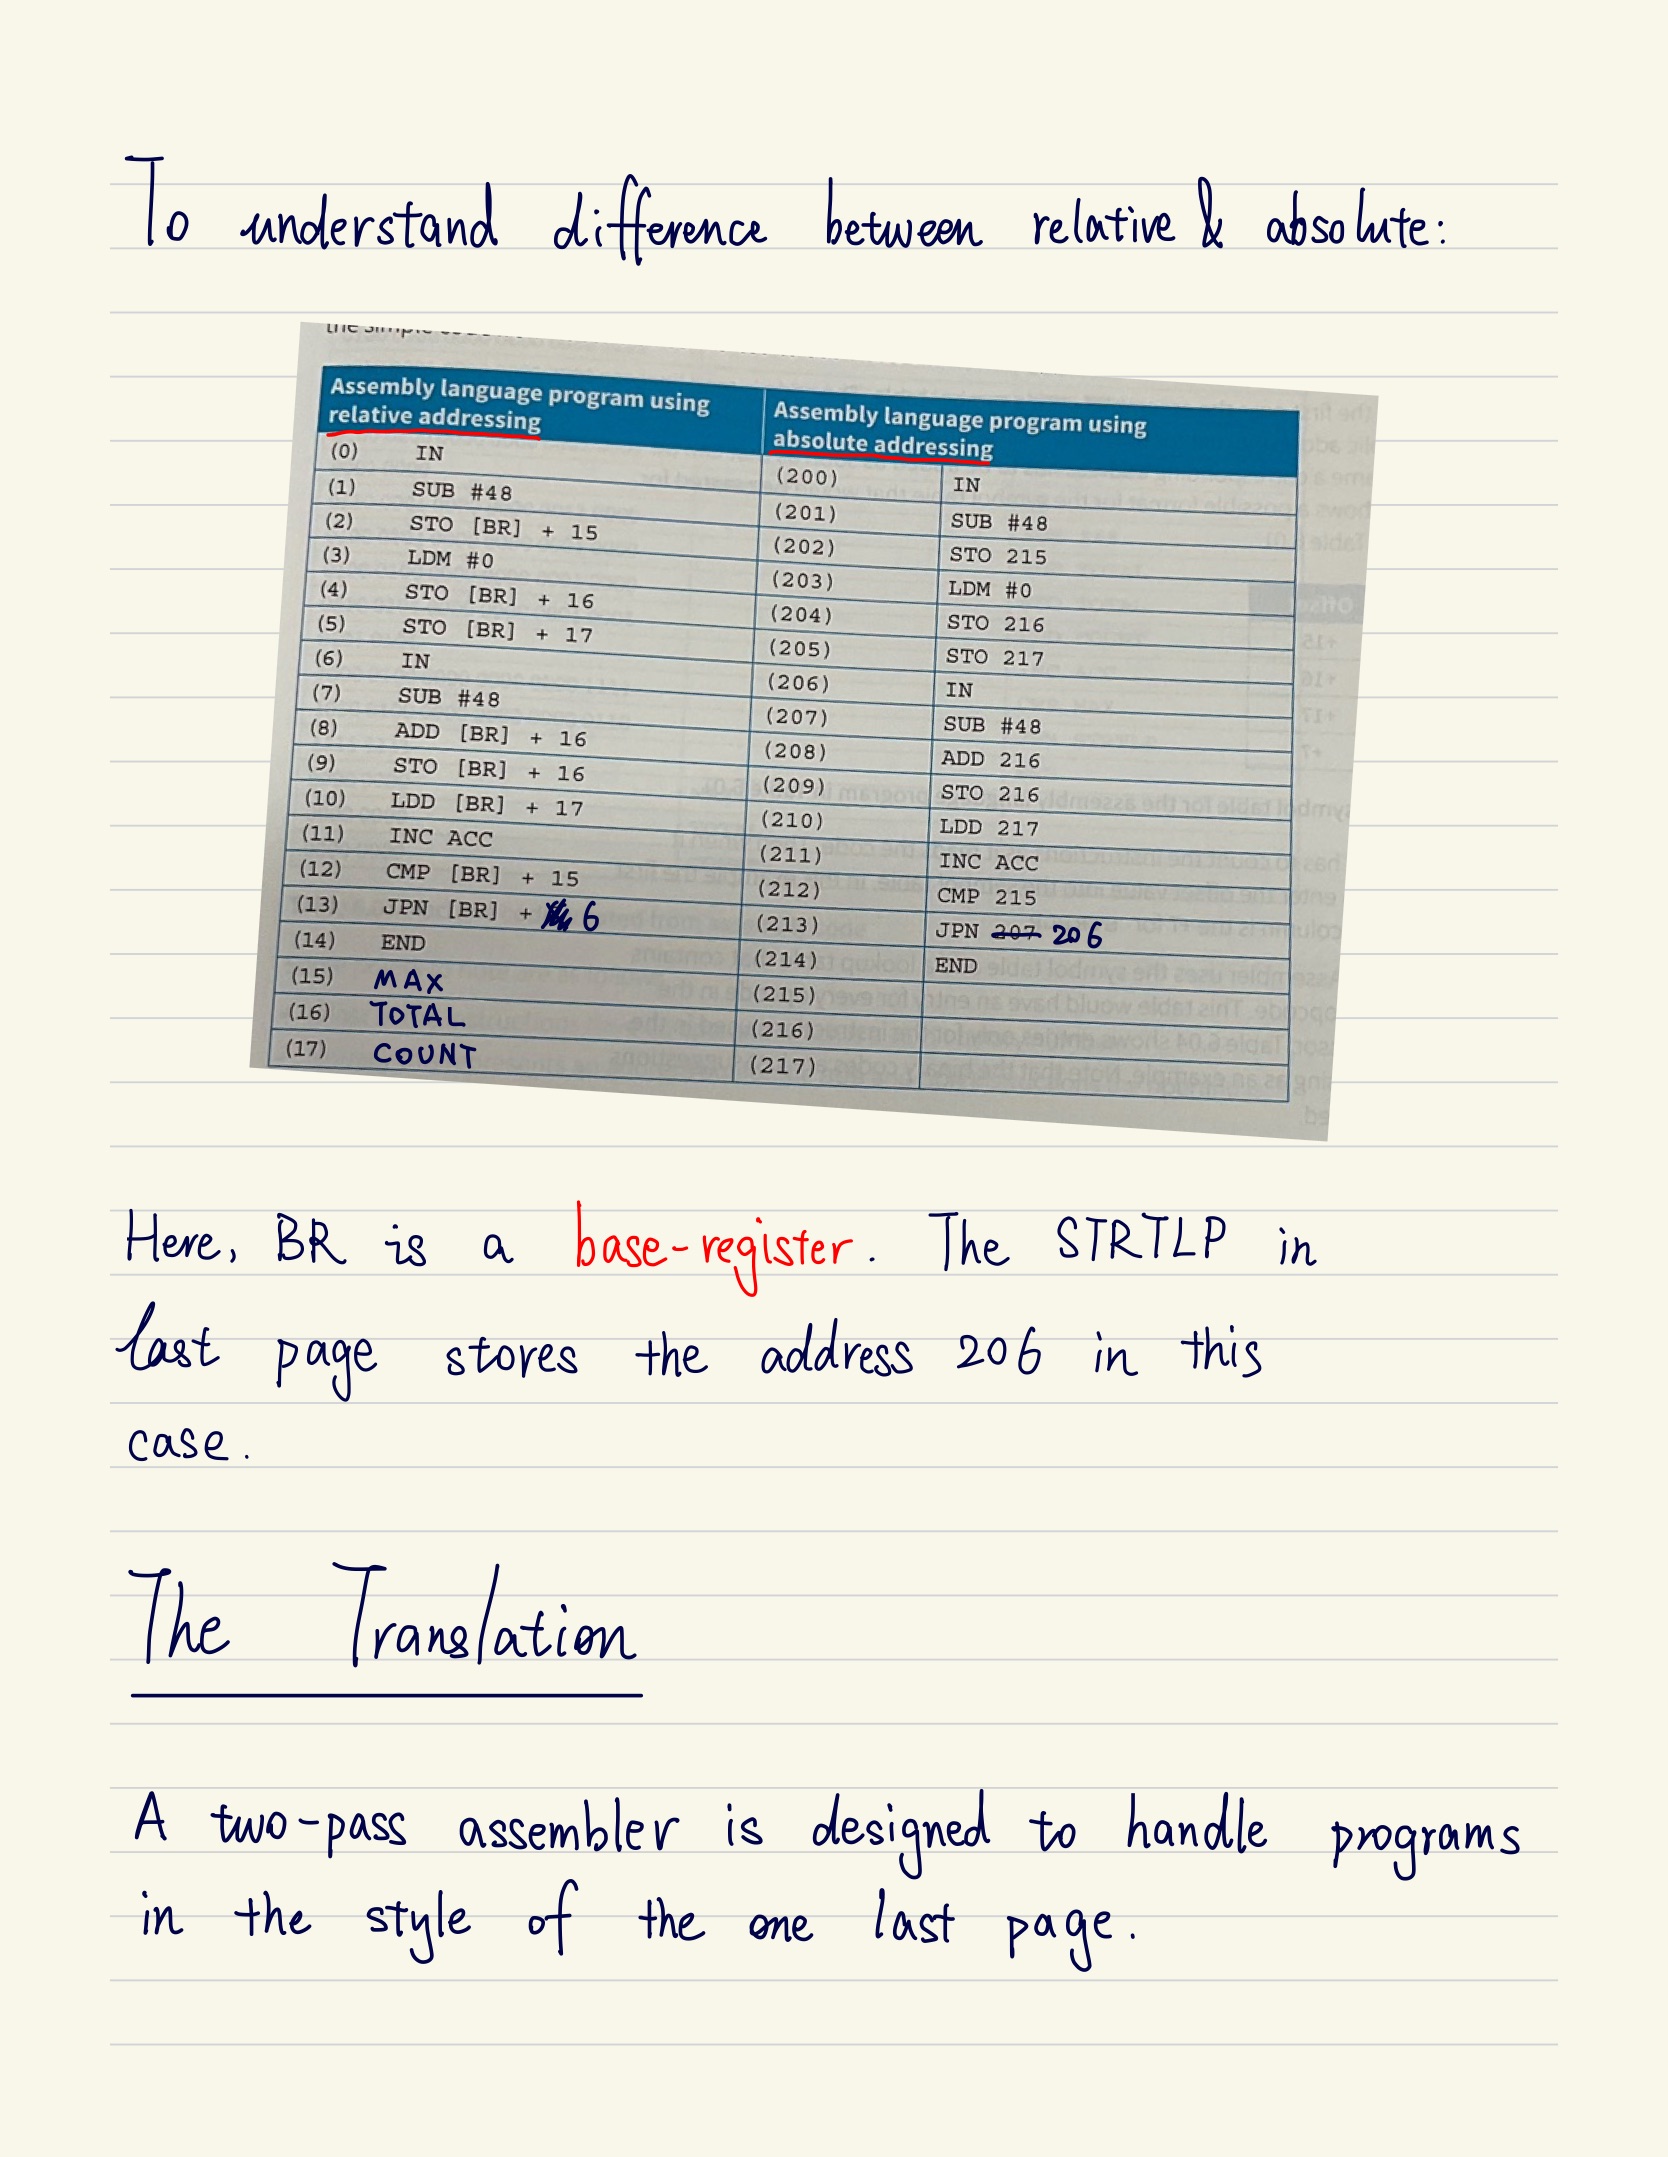 To understand difference between relative & absolute:
Assembly language program using relative addressing
Assembly language program using absolute addressing
(0) IN (200) IN
(1) SUB #48 (201) SUB #48
(2) STO [BR] + 15 (202) STO 215
(3) LDM #0 (203) LDM #0
(4) STO [BR] + 16 (204) STO 216
(5) STO [BR] + 17 (205) STO 217
(6) IN (206) IN
(7) SUB #48 (207) SUB #48
(8) ADD [BR] + 16 (208) ADD 216
(9) STO [BR] + 16 (209) STO 216
(10) LDD [BR] + 17 (210) LDD 217
(11) INC ACC (211) INC ACC
(12) CMP [BR] + 15 (212) CMP 215
(13) JPN [BR] + 6 (213) JPN 207 206
(14) END (214) END
(15) MAX (215)
(16) TOTAL (216)
(17) COUNT (217)
Here, BR is a base-register. The STRTLP in
last page stores the address 206 in this
case.
The Translation
A two-pass assembler is designed to handle programs
in the style of the one last page.